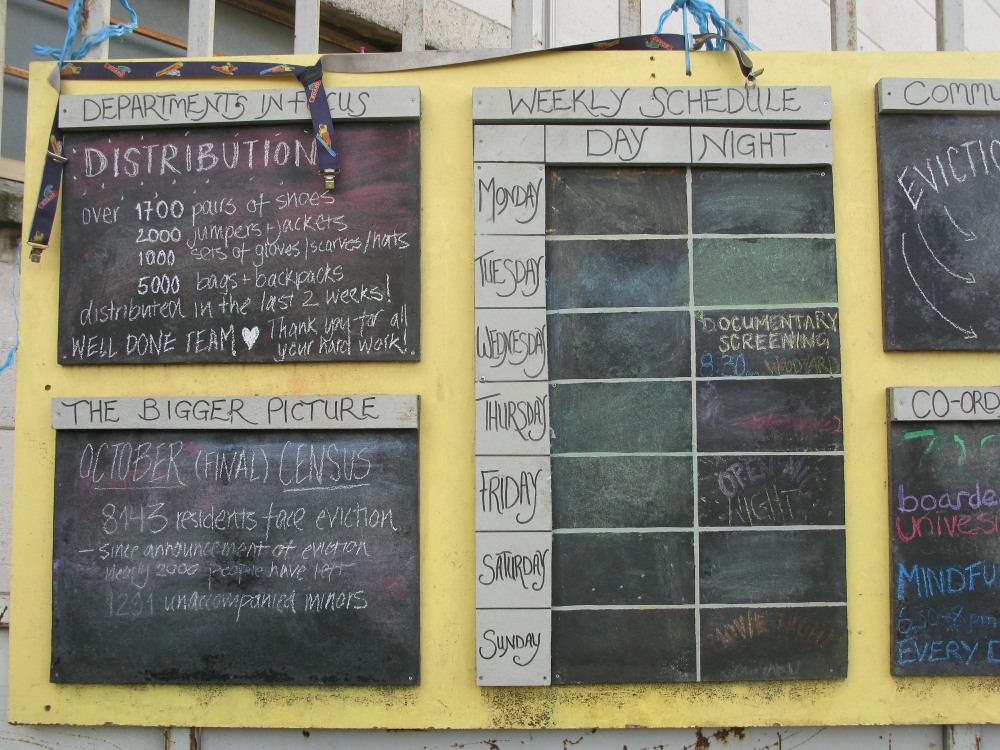 DEPARTMENTS IN FOCUS
DISTRIBUTION
over 1700 pairs of shoes
2000 jumpers + jackets
1000 sets of gloves/scarves/hats
5000 bags + backpacks
distributed in the last 2 weeks!
WELL DONE TEAM Thank you for all
your hard work!
THE BIGGER PICTURE
OCTOBER (FINAL) CENSUS
8143 residents face eviction
- since announcement of eviction
nearly 2000 people have left
1291 unaccompanied minors
WEEKLY SCHEDULE
DAY NIGHT
MONDAY
TUESDAY
WEDNESDAY
DOCUMENTARY
SCREENING
8.30 WOODYARD
THURSDAY
FRIDAY
OPEN MIC
NIGHT
SATURDAY
SUNDAY
COMMU
EVICTIO
CO-ORD
boarde
MINDFU
EVERY D